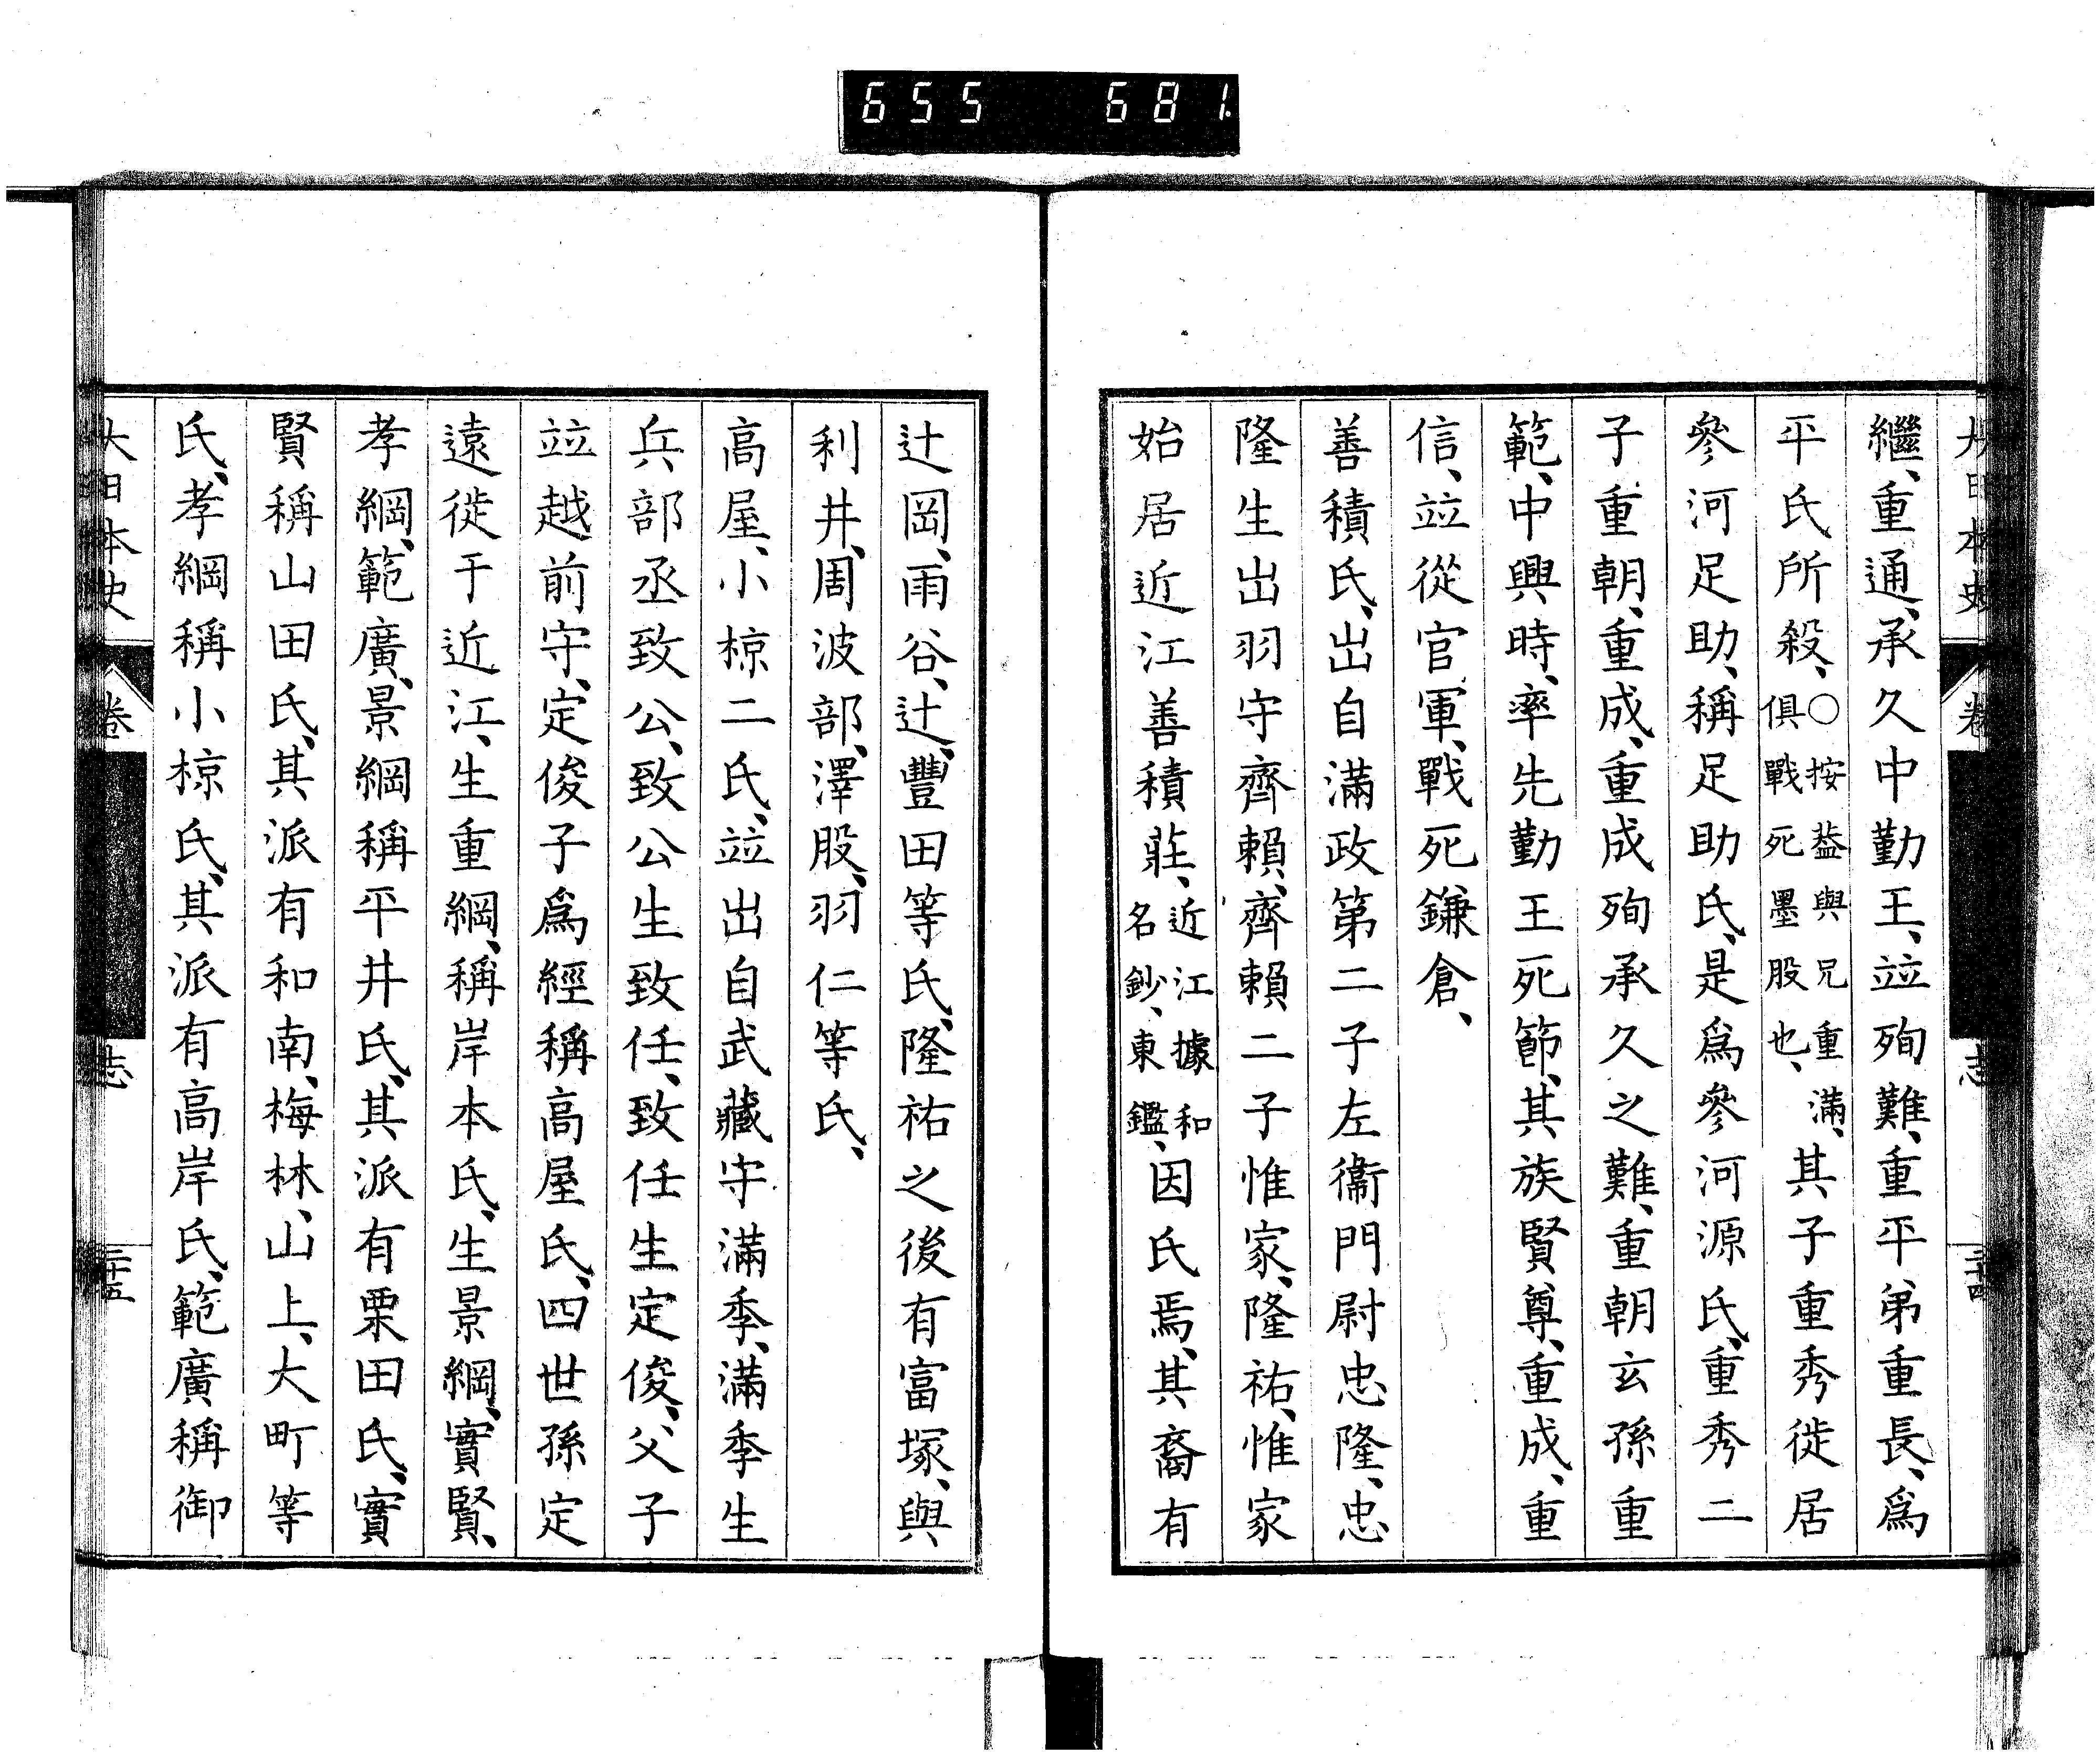 655 681
大日本史 卷 志 三十四
繼、重通、承久中勤王、竝殉難、重平弟重長、爲
平氏所殺、○按葢與兄重滿、俱戰死墨股也、其子重秀徙居
參河足助、稱足助氏、是爲參河源氏、重秀二
子重朝、重成、重成殉承久之難、重朝玄孫重
範、中興時、率先勤王死節、其族賢尊、重成、重
信、竝從官軍、戰死鎌倉、
善積氏、出自滿政第二子左衞門尉忠隆、忠
隆生出羽守齊賴、齊賴二子惟家、隆祐、惟家
始居近江善積莊、近江據和名鈔、東鑑、因氏焉、其裔有
辻岡、雨谷、辻、豐田等氏、隆祐之後有富塚、與
利井、周波部、澤股、羽仁等氏、
高屋、小椋二氏、竝出自武藏守滿季、滿季生
兵部丞致公、致公生致任、致任生定俊、父子
竝越前守、定俊子爲經稱高屋氏、四世孫定
遠徙于近江、生重綱、稱岸本氏、生景綱、實賢、
孝綱、範廣、景綱稱平井氏、其派有栗田氏、實
賢稱山田氏、其派有和南、梅林、山上、大町等
氏、孝綱稱小椋氏、其派有高岸氏、範廣稱御
大日本史 卷 志 三十五